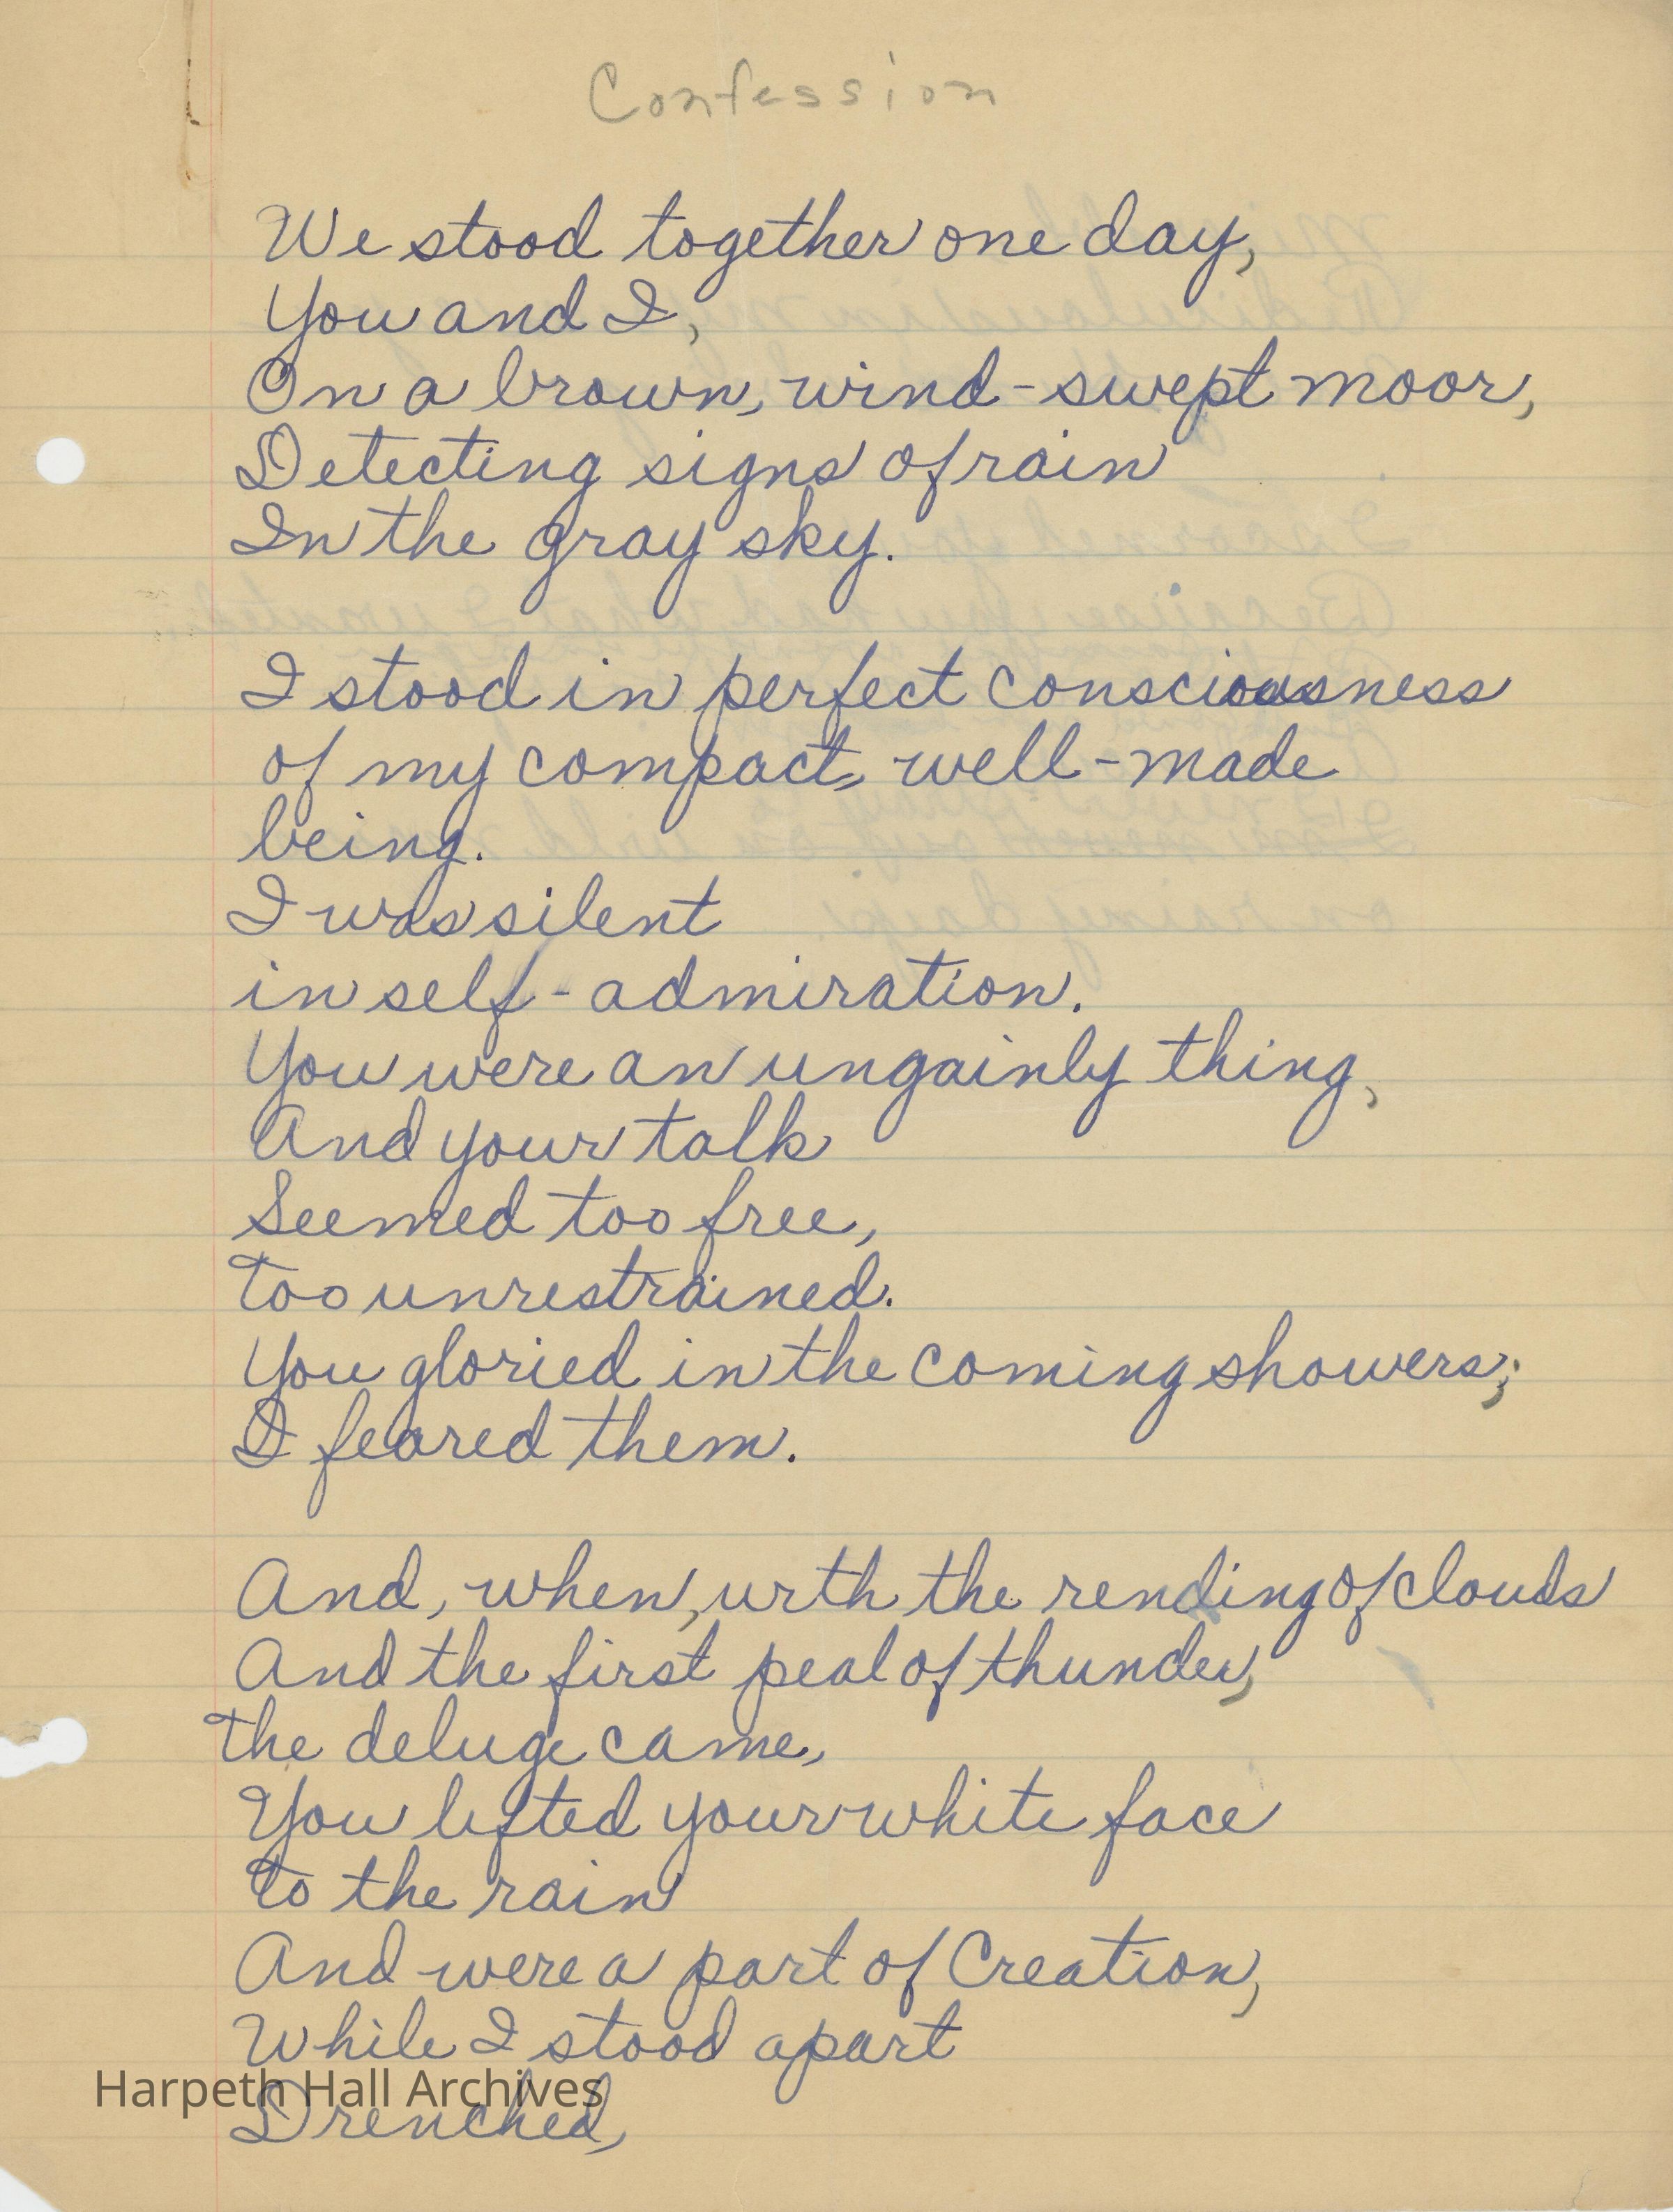 Confession
We stood together one day,
You and I,
On a brown, wind-swept moor,
Detecting signs of rain
In the gray sky.
I stood in perfect consciousness
of my compact, well-made
being.
I was silent
in self-admiration.
You were an ungainly thing,
And your talk
Seemed too free,
Too unrestrained.
You gloried in the coming showers;
I feared them.
And, when, with the rending of clouds
And the first peal of thunder,
The deluge came,
You lifted your white face
To the rain
And were a part of Creation,
While I stood apart
Harpeth Hall Archives
Drenched,